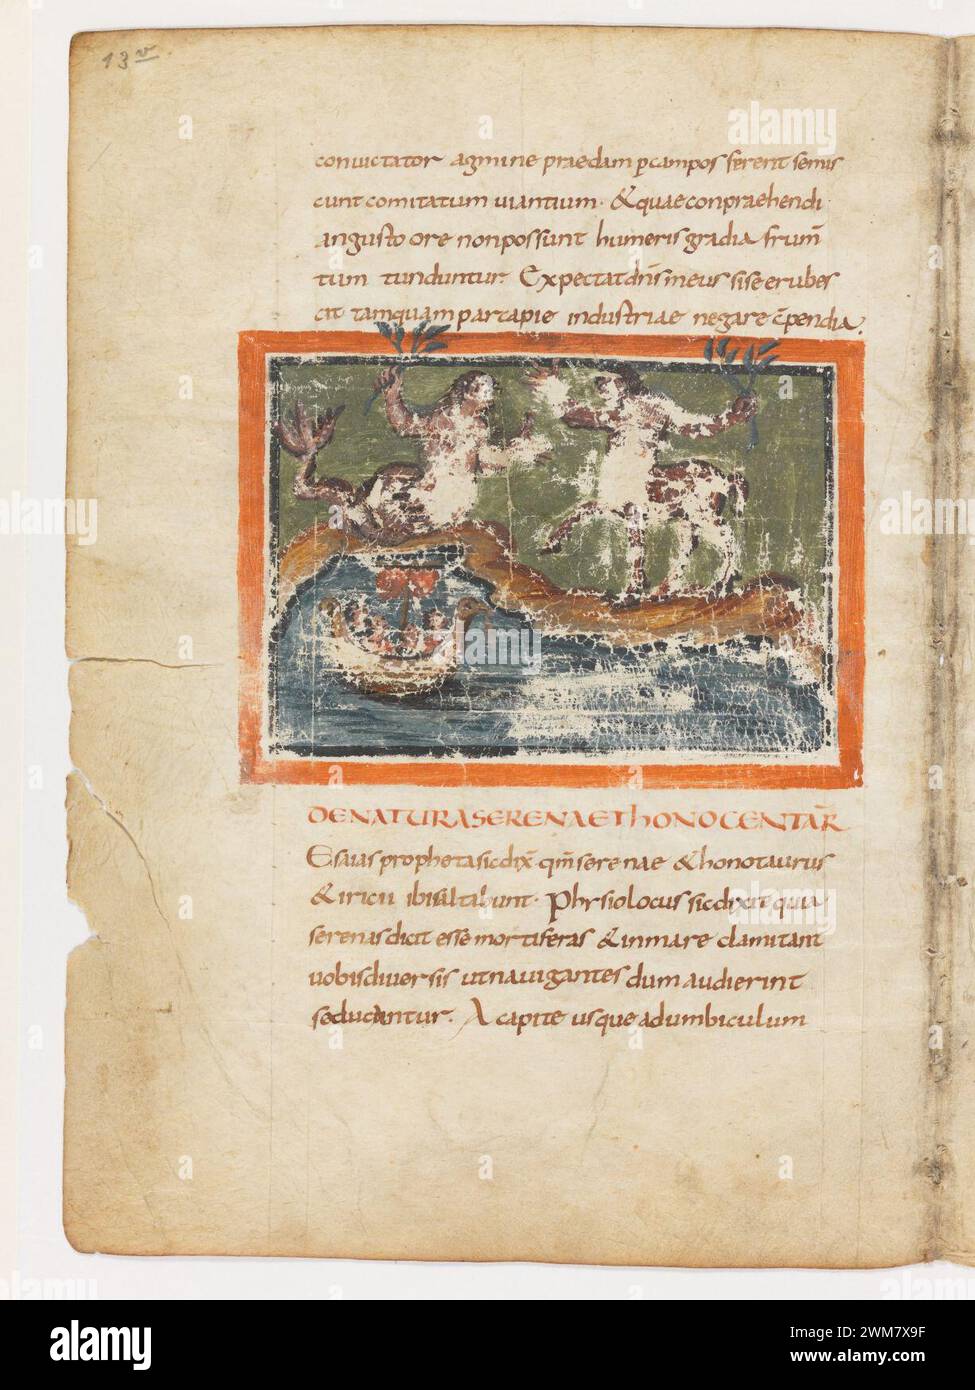 13v
conuictator agmine praedam p campos fererit semis
cunt comitatum uiantium. &quae conpraehendi
angusto ore non possunt humeris gradia frum̄
tum tunduntur. Expectat dn̄s meus si se erubes
cit tamquam partapie industriae negare c̄pendia.
DE NATURA SERENAE ET HONOCENTAR̄
Esaias propheta sic dix̄ qm̄ serenae &honotaurus
&iricii ibi saltabunt. Phisiolocus sic dixit quia
serenas dicit esse mortiferas &in mare clamitant
uobis diuersis ut nauigantes dum audierint
seducantur. A capite usque ad umbiculum
alamy
alamy
Image ID: 2WM7X9F
www.alamy.com